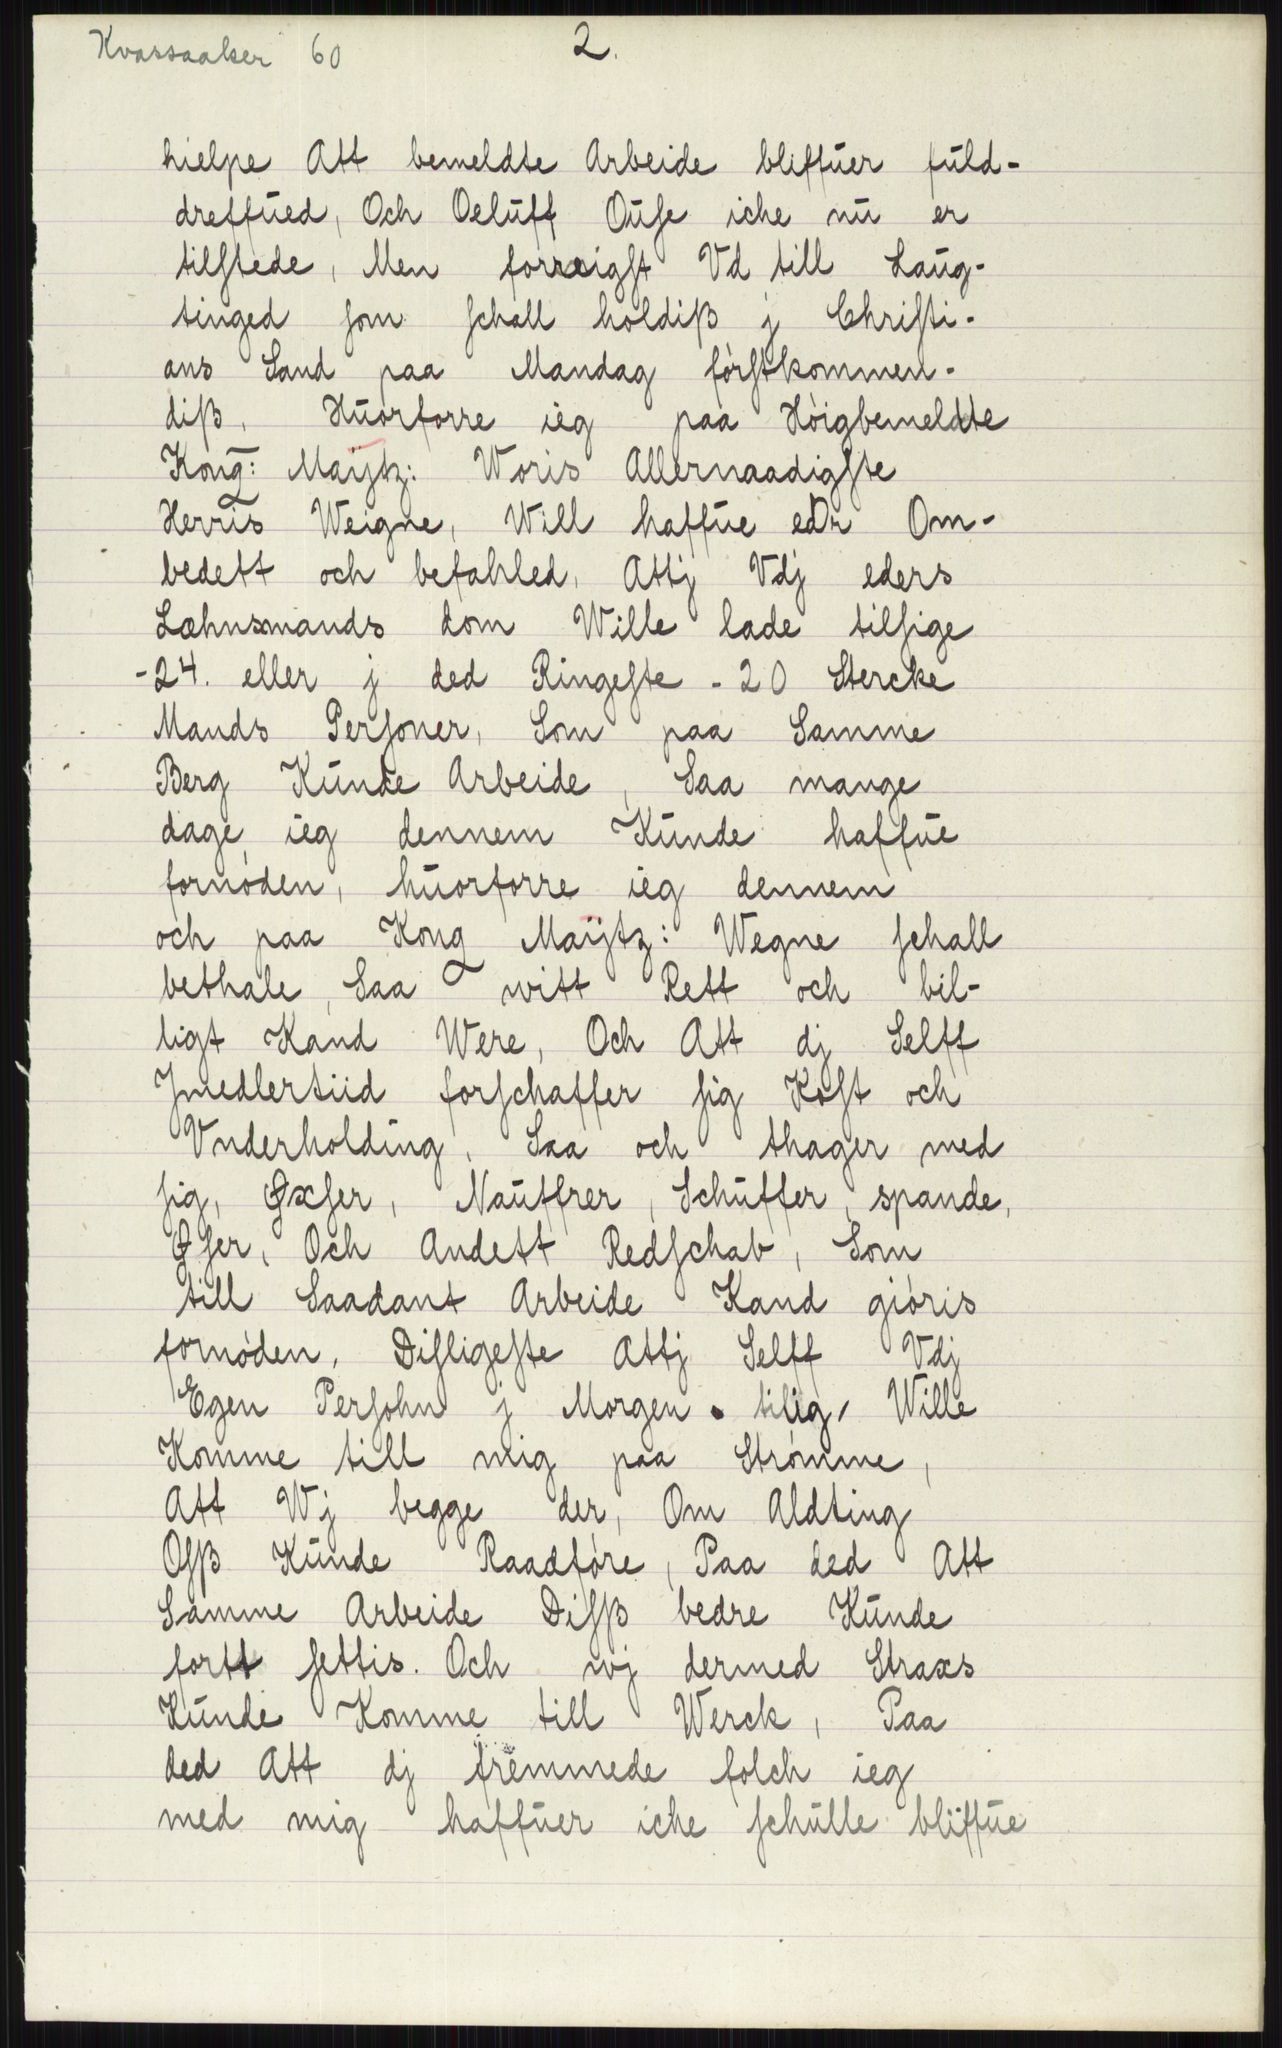 Kvassaaker 60
2.
hielpe Att bemeldte Arbeide bliffuer fuld-
dreffued, Och Oeluff Ouſe iche nu er
tilſtede, Men forreigſt Vd till Laug-
tinged ſom ſchall holdiß j Chriſti-
ans Sand paa Mandag förſtkommen-
diß, Huorforre ieg paa Höigbemeldte
Kong: Maÿtz: Woris Allernaadigſte
Herris Weigne, Will haffue edr Om-
bedett och befahled, Attj Vdj eders
Læhnsmands dom Wille lade tilſige
-24. eller j ded Ringeſte - 20 Stercke
Mands Perſoner, Som paa Samme
Berg Kunde Arbeide, Saa mange
dage ieg dennem Kunde haffue
fornöden, huorforre ieg dennem
och paa Kong Maÿtz: Wegne ſchall
bethale, Saa witt Rett och bil-
ligt Kand Were, Och Att dj Selff
Jmedlertiid forſchaffer ſig Koſt och
Vnderholding, Saa och thager med
ſig, Øxſer, Nauffrer, Schuffer, spande,
Øſer, Och Andett Redſchab, Som
till Saadant Arbeide Kand giöris
fornöden, Diſligeſte Attj Selff Vdj
Egen Perſohn j Morgen tilig, Wille
Komme till mig paa Strömme,
Att Wj begge der, Om Aldting
Oſß Kunde Raadföre, Paa ded Att
Samme Arbeide Diſß bedre Kunde
fortt ſettis. Och wj dermed Straxs
Kunde Komme till Werck, Paa
ded Att dj fremmede folch ieg
med mig haffuer iche ſchulle bliffue